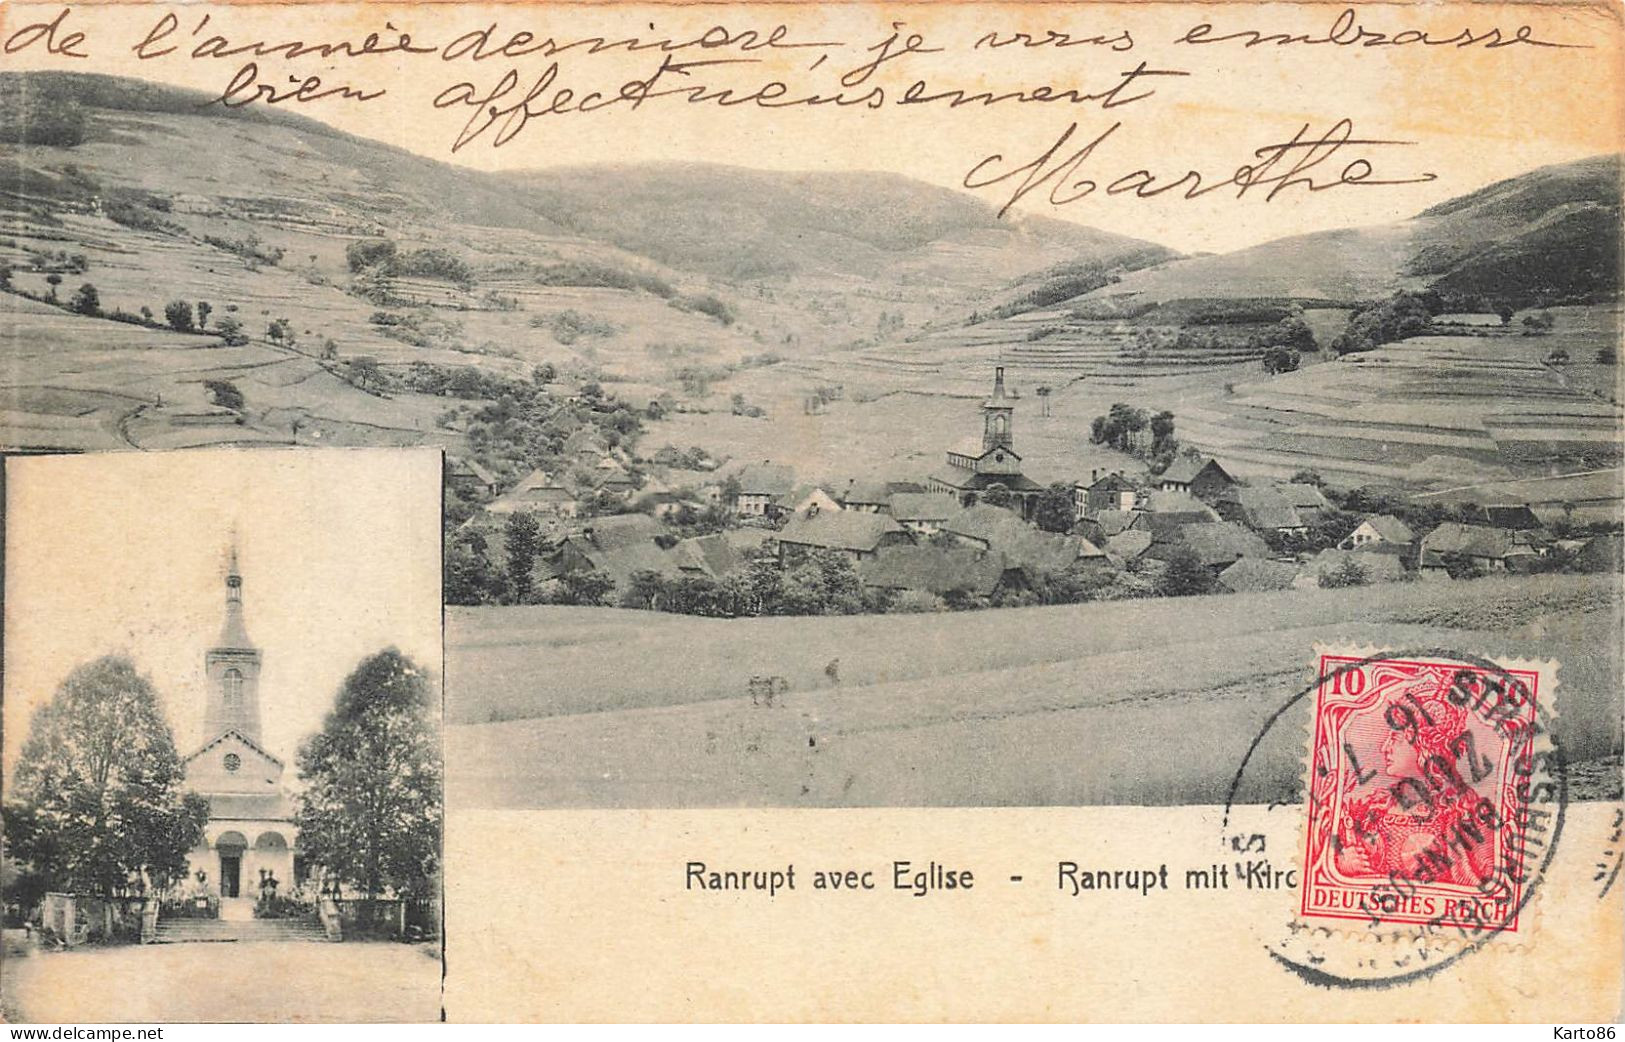 de l'année dernière, je vous embrasse
bien affectueusement
Marthe
Ranrupt avec Eglise - Ranrupt mit Kirc
10
DEUTSCHES REICH
STRASSBURG
16 7
BAHNPOST
ZUG
www.delcampe.net
Karto86